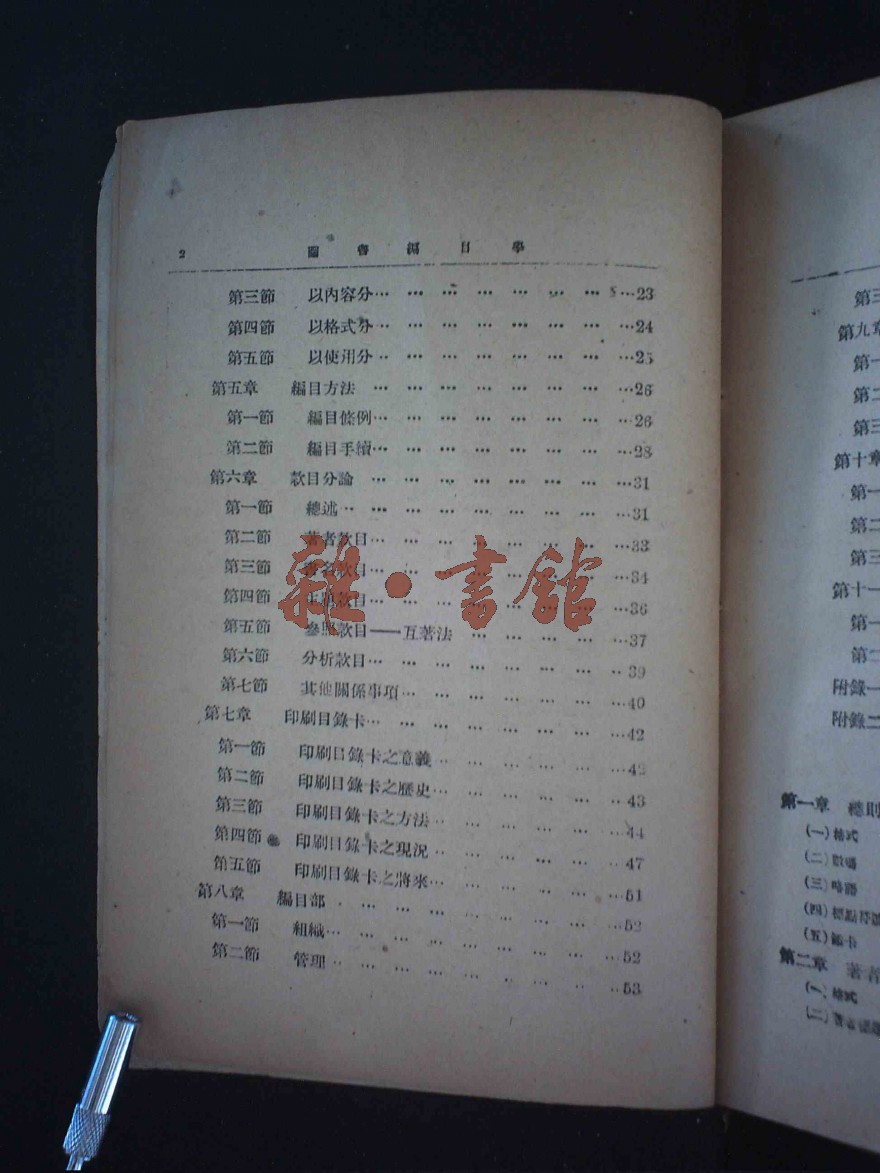 2 圖書編目學
第三節 以內容分… … … … … … … …23
第四節 以格式分… … … … … … … …24
第五節 以使用分… … … … … … … …25
第五章 編目方法 … … … … … … … …26
第一節 編目條例… … … … … … … …26
第二節 編目手續… … … … … … … …28
第六章 款目分論 … … … … … … … …31
第一節 總述… … … … … … … … …31
第二節 著者款目… … … … … … … …33
第三節 書名款目… … … … … … … …34
第四節 主題款目… … … … … … … …36
第五節 參照款目——互著法 … … … … … …37
第六節 分析款目… … … … … … … …39
第七節 其他關係事項… … … … … … …40
第七章 印刷目錄卡… … … … … … … …42
第一節 印刷目錄卡之意義… … … … … …42
第二節 印刷目錄卡之歷史… … … … … …43
第三節 印刷目錄卡之方法… … … … … …44
第四節 印刷目錄卡之現況… … … … … …47
第五節 印刷目錄卡之將來… … … … … …51
第八章 編目部 … … … … … … … … …52
第一節 組織… … … … … … … … …52
第二節 管理… … … … … … … … …53
雜·書館
第三
第九章
第一
第二
第三
第十章
第一
第二
第三
第十一
第一
第二
附錄一
附錄二
第一章 總則
(一)格式
(二)
(三)略語
(四)標點符號
(五)
第二章 著者
(一)格式
(二)著者